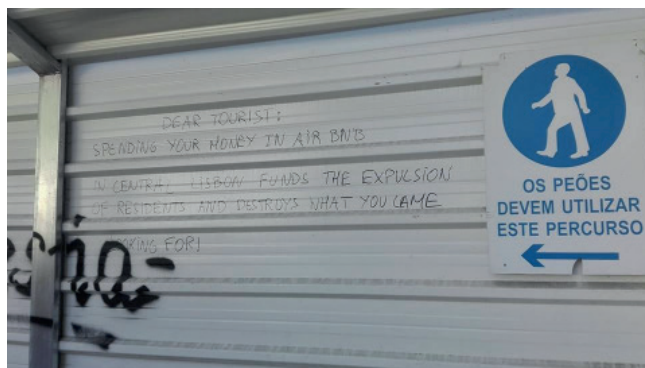 DEAR TOURIST:
SPENDING YOUR MONEY IN AIR BNBS
IN CENTRAL LISBON FUNDS THE EXPULSION
OF RESIDENTS AND DESTROYS WHAT YOU CAME
LOOKING FOR!
OS PEÕES
DEVEM UTILIZAR
ESTE PERCURSO